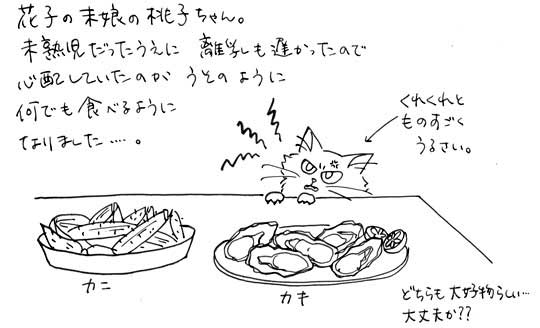 花子の末娘の桃子ちゃん。
未熟児だったうえに 離乳も遅かったので
心配していたのが うそのように
何でも食べるように
なりました……。
くれくれと
ものすごく
うるさい。
カニ
カキ
どちらも大好物らしい…
大丈夫か??